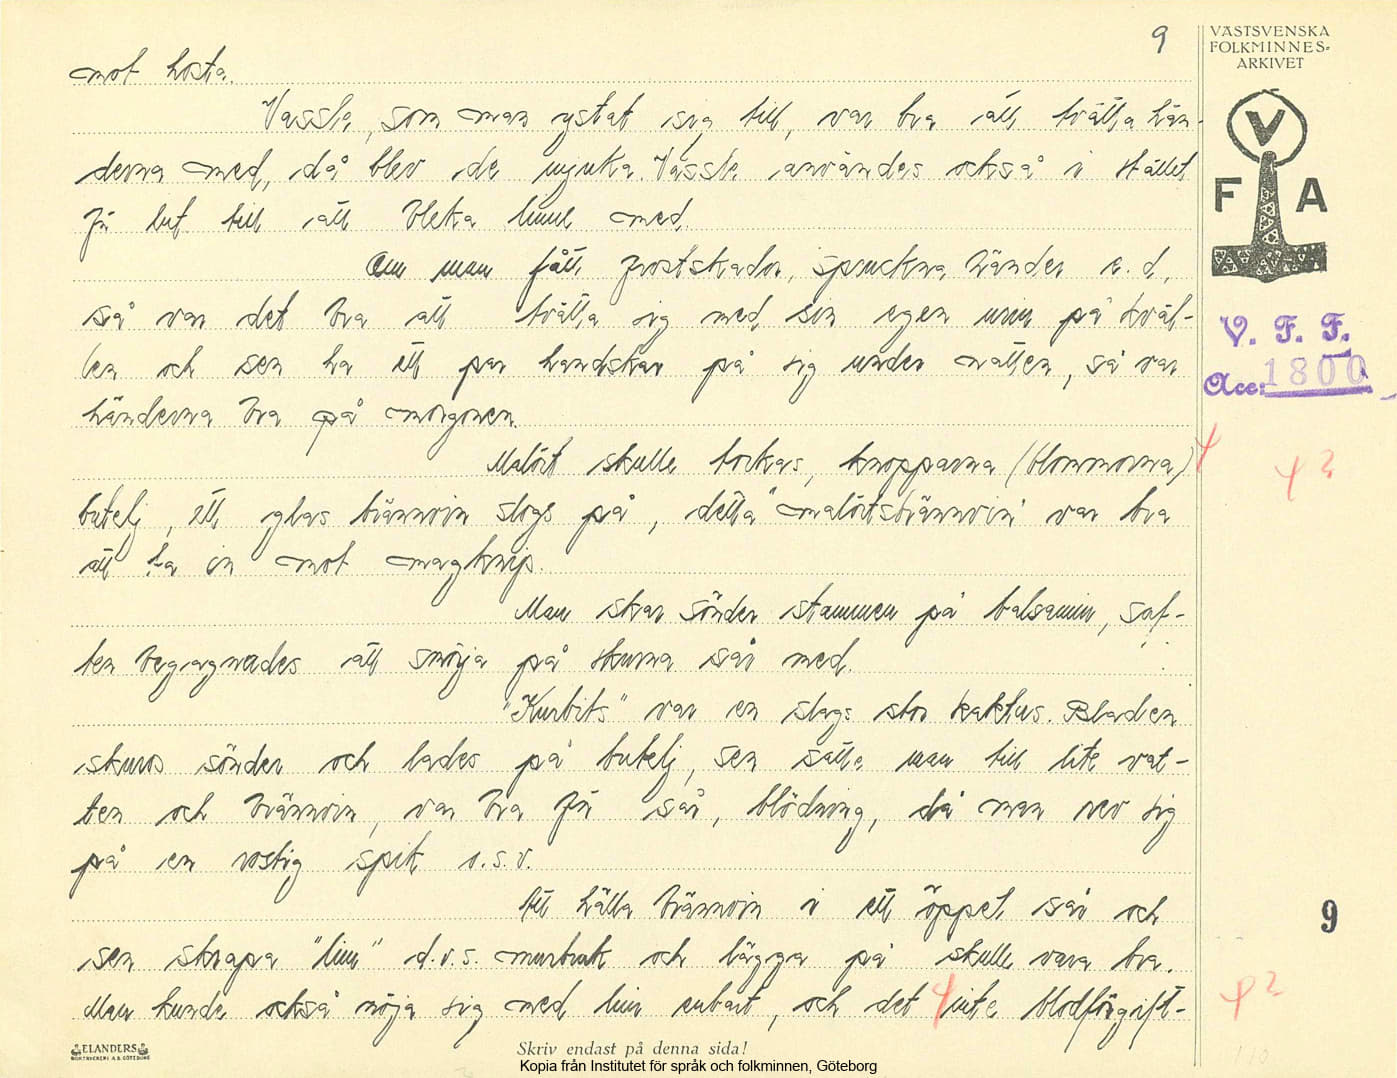 9
VÄSTSVENSKA
FOLKMINNES-
ARKIVET
V
F A
V. F. F.
Acc: 1800
mot hosta.
Vassla, som man ystat sig till, var bra att tvätta hän-
derna med, då blev de mjuka. Vassla användes också i stället
för lut till att bleka linne med.
Om man fått frostskador, spruckna händer e. d.,
så var det bra att tvätta sig med sin egen urin på kväl-
len och sen ha ett par handskar på sig under natten, så var
händerna bra på morgonen.
Malört skulle torkas, knopparna (blommorna) på
butelj, ett glas brännvin slogs på, detta "malörtsbrännvin" var bra
att ta in mot magknip.
Man skar sönder stammen på balsamin, saf-
ten begagnades att smörja på skurna sår med.
"Kurbits" var en slags stor kaktus. Bladen
skuros sönder och lades på butelj, sen satte man till lite vat-
ten och brännvin, var bra för sår, blödning, då man rev sig
på en rostig spik o.s.v.
Att hälla brännvin i ett öppet sår och
sen skrapa "lim" d.v.s. murbruk och lägga på skulle vara bra.
Man kunde också nöja sig med lim enbart, och det inte blodförgift-
9
ELANDERS
BOKTRYCKERI A.B. GÖTEBORG
Skriv endast på denna sida!
Kopia från Institutet för språk och folkminnen, Göteborg